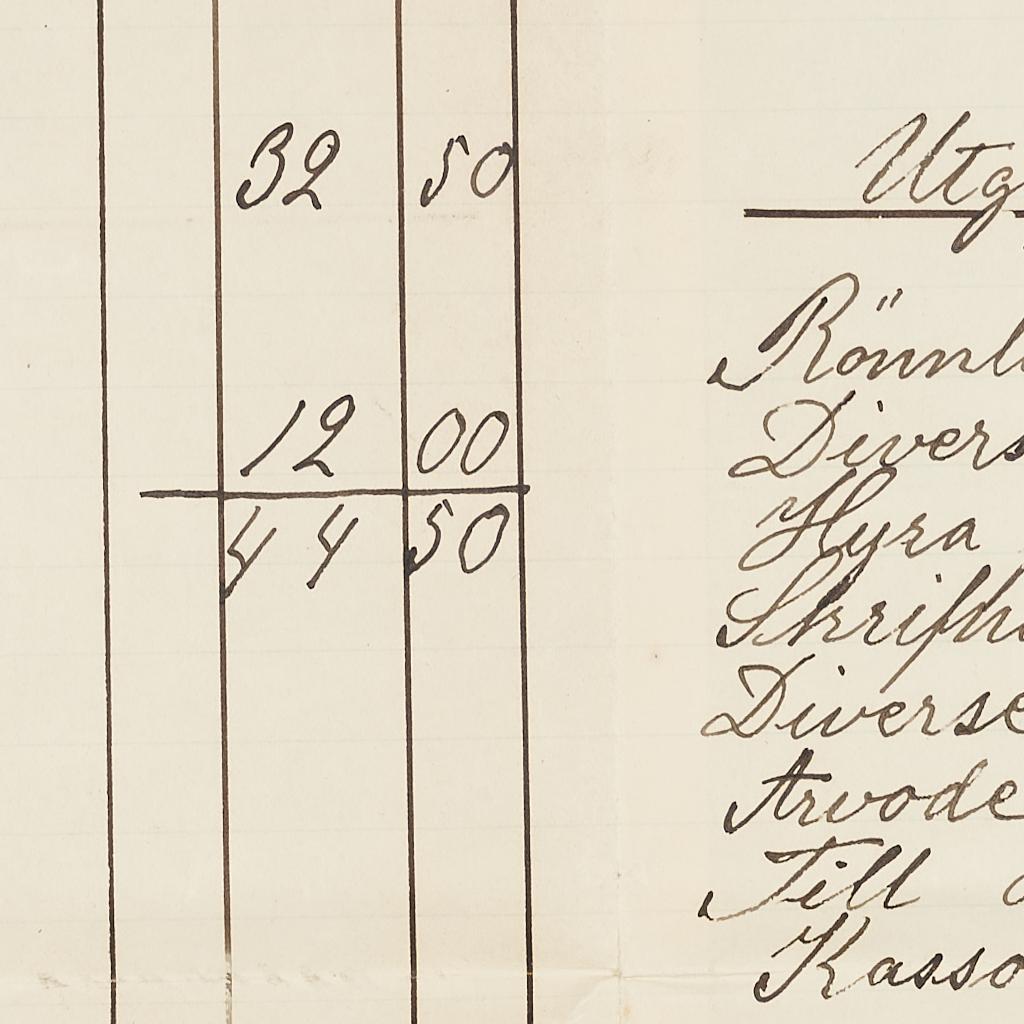 32 50
12 00
44 50
Utg
Rönnl
Divers
Hyra
Skrifh
Diverse
Arvode
Till
Kasso